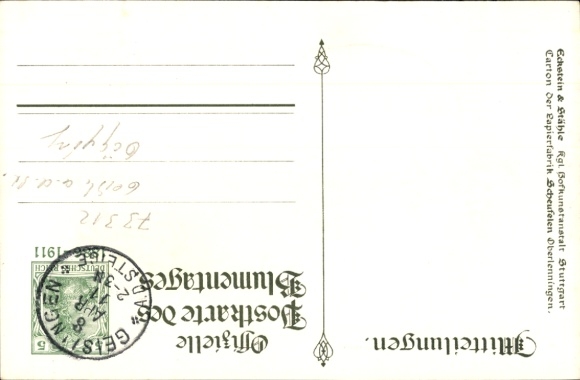 Offizielle
Postkarte des
Blumentages
Mitteilungen.
5
DEUTSCHES REICH
1911
GEISLINGEN * A.D. STEIGE *
8
APR
11
2-3N
73312
Geisl. a.d. St.
Eckstein & Stähle Kgl. Hofkunstanstalt Stuttgart
Carton der Papierfabrik Scheufelen Oberlenningen.